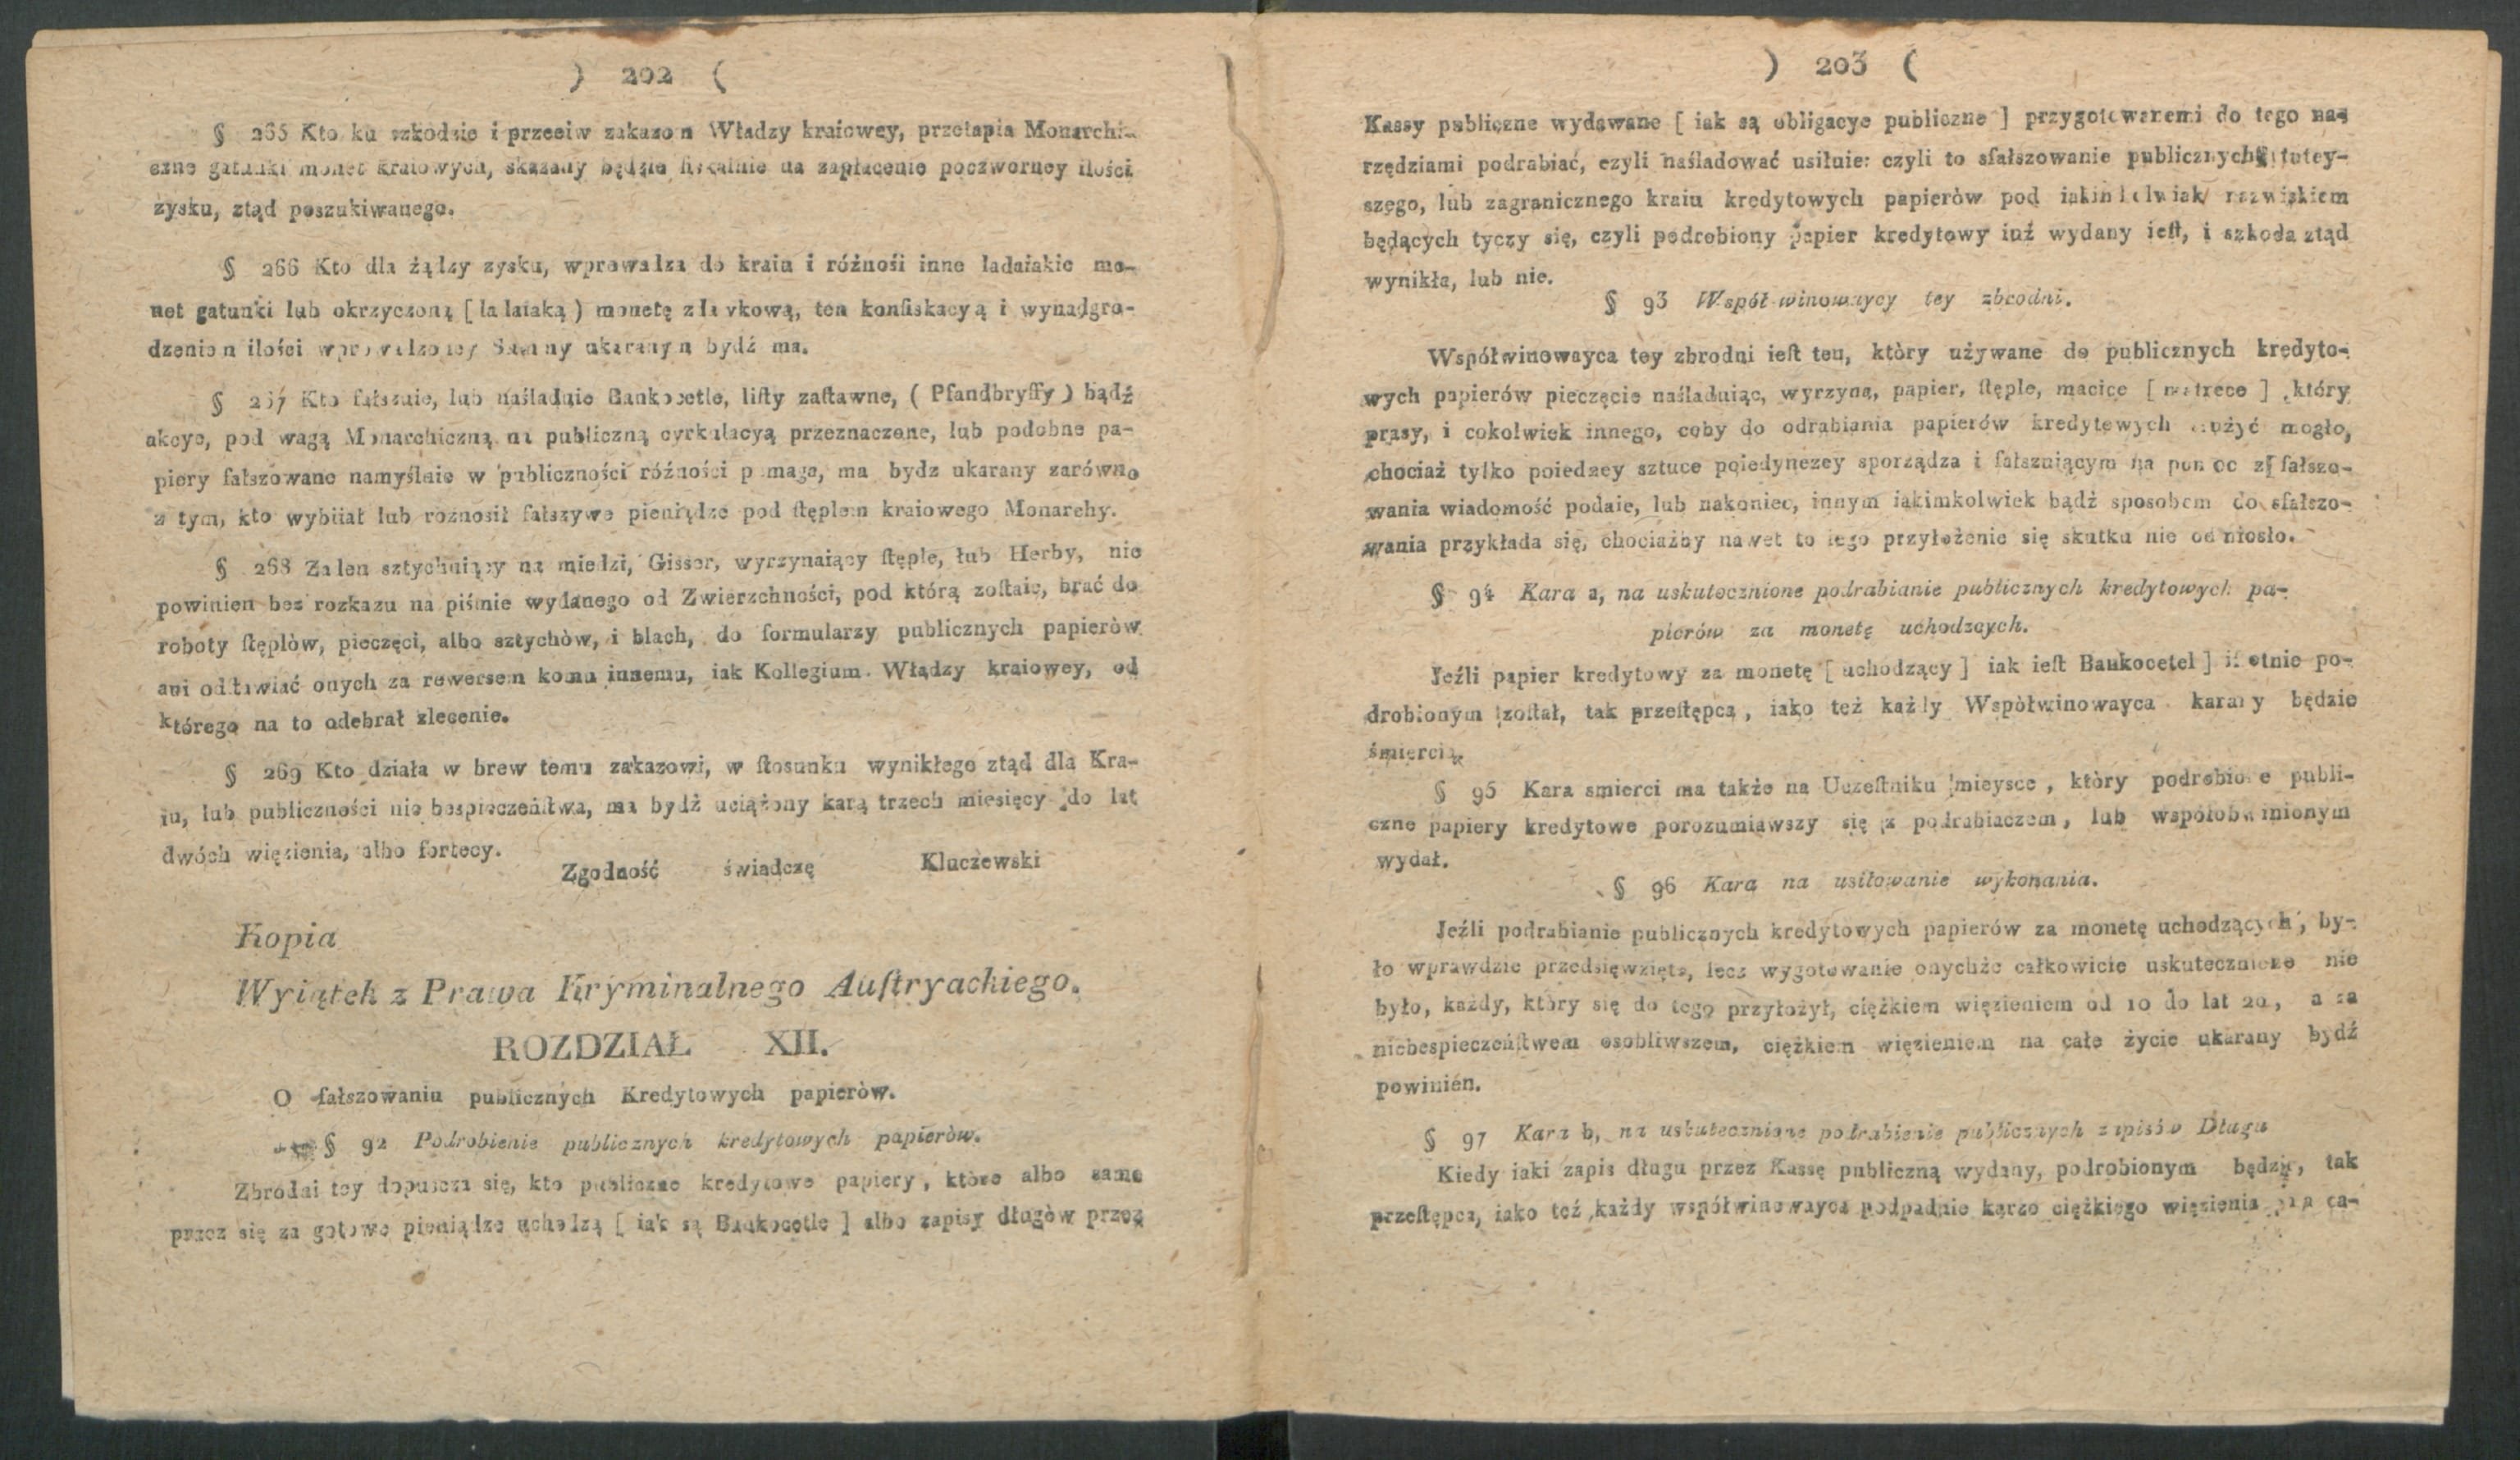 ) 202 (
§ 265 Kto ku szkodzie i przeciw zakazom Władzy kraiowey, przetapia Monarchi-
czne gatunki monet kraiowych, skazany będzie fiskalnie na zapłacenie poczworney ilości
zysku, ztąd poszukiwanego.
§ 266 Kto dla żądzy zysku, wprowadza do kraiu i różnośi inne ladaiakie mo-
net gatunki lub okrzyczoną [ladaiaką) monetę zdawkową, ten konfiskacyą i wynadgro-
dzeniem ilości wprowadzoney Summy ukaranym bydź ma.
§ 267 Kto fałszuie, lub naśladuie Bankocetle, liſty zaſtawne, ( Pfandbryffy ) bądź
akcye, pod wagą Monarchiczną na publiczną cyrkulacyą przeznaczone, lub podobne pa-
piery fałszowane namyślnie w publiczności różności pomaga, ma bydz ukarany zarówno
z tym, kto wybiiał lub roznosił fałszywe pieniądze pod ſtęplem kraiowego Monarchy.
§ 268 Żaden sztychuiący na miedzi, Gisser, wyrzynaiący ſtęple, łub Herby, nie
powinien bez rozkazu na piśmie wydanego od Zwierzchności, pod którą zoſtaie, brać do
roboty ſtęplów, pieczęci, albo sztychòw, i blach, do formularzy publicznych papieròw
ani oddawiać onych za rewersem komu innemu, iak Kollegium Władzy kraiowey, od
którego na to odebrał zlecenie.
§ 269 Kto działa w brew temu zakazowi, w ſtosunku wynikłego ztąd dla Kra-
iu, lub publiczności nie bespieczeńſtwa, ma bydż uciążony karą trzech miesięcy do lat
dwóch więzienia, albo fortecy.
Zgodność świadczę Kluczewski
Kopia
Wyiątek z Prawa Kryminalnego Auſtryackiego.
ROZDZIAŁ XII.
O fałszowaniu publicznych Kredytowych papieròw.
§ 92 Podrobienie publicznych kredytowych papieròw.
Zbrodni tey dopuszcza się, kto publiczne kredytowe papiery, które albo same
przez się za gotowe pieniądze uchodzą [ iak są Bankocetle ] albo zapisy długòw przez
) 203 (
Kassy publiczne wydawane [ iak są obligacye publiczne ] przygotowanemi do tego na-
rzędziami podrabiać, czyli naśladować usiłuie: czyli to sfałszowanie publicznych tutey-
szego, lub zagranicznego kraiu kredytowych papieròw pod iakimkolwiak nazwiskiem
będących tyczy się, czyli podrobiony papier kredytowy iuż wydany ieſt, i szkoda ztąd
wynikła, lub nie.
§ 93 Współ-winowaycy tey zbrodni.
Współwinowayca tey zbrodni ieſt ten, który używane do publicznych kredyto-
wych papierów pieczęcie naśladuiąc, wyrzyna, papier, ſtęple, macice [ matrece ] który
prasy, i cokolwiek innego, coby do odrabiania papierów kredytowych służyć mogło,
chociaż tylko poiedzey sztuce poiedynczey sporządza i fałszuiącym na pomoc fałszo-
wania wiadomość podaie, lub nakoniec, innym iakimkolwiek bądź sposobem do sfałszo-
wania przykłada się, chociażby nawet to iego przyłożenie się skutku nie odniosło.
§ 94 Kara a, na uskutecznione podrabianie publicznych kredytowych pa-
pierów za monetę uchodzcych.
Jeźli papier kredytowy za monetę [ uchodzący ] iak ieſt Bankocetel ] iſtotnie po-
drobionym zoſtał, tak przeſtępca, iako też każdy Wspòłwinowayca karany będzie
śmiercią.
§ 95 Kara smierci ma także na Uczeſtniku mieysce, który podrobione publi-
czne papiery kredytowe porozumiawszy się z podrabiaczem, lub współobwinionym
wydał.
§ 96 Kara na usiłowanie wykonania.
Jeźli podrabianie publicznych kredytowych papierów za monetę uchodzących, by-
ło wprawdzie przedsięwzięte, lecz wygotowanie onychże całkowicie uskutecznione nie
było, każdy, który się do tego przyłożył, ciężkiem więzieniem od 10 do lat 20, a za
niebespieczeńſtwem osobliwszem, ciężkiem więzieniem na całe życie ukarany bydź
powinién.
§ 97 Kara b, na uskutecznione podrabienie publicznych zapisów Długu
Kiedy iaki zapis długu przez Kassę publiczną wydany, podrobionym będzie, tak
przeſtępca, iako też każdy współwinowayca podpadnie karze ciężkiego więzienia na ca-